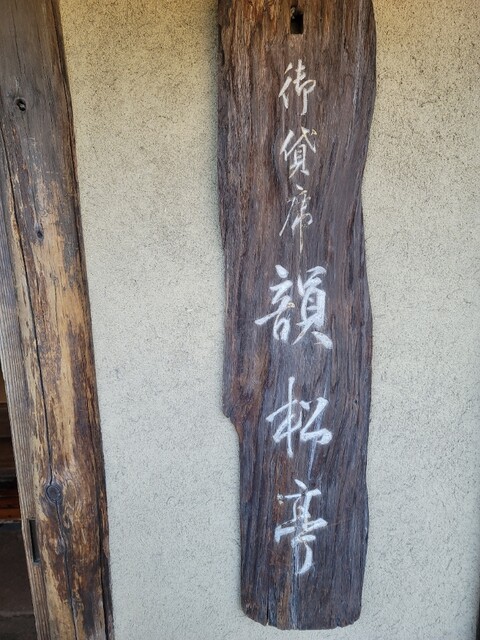 御貸席 韻松亭